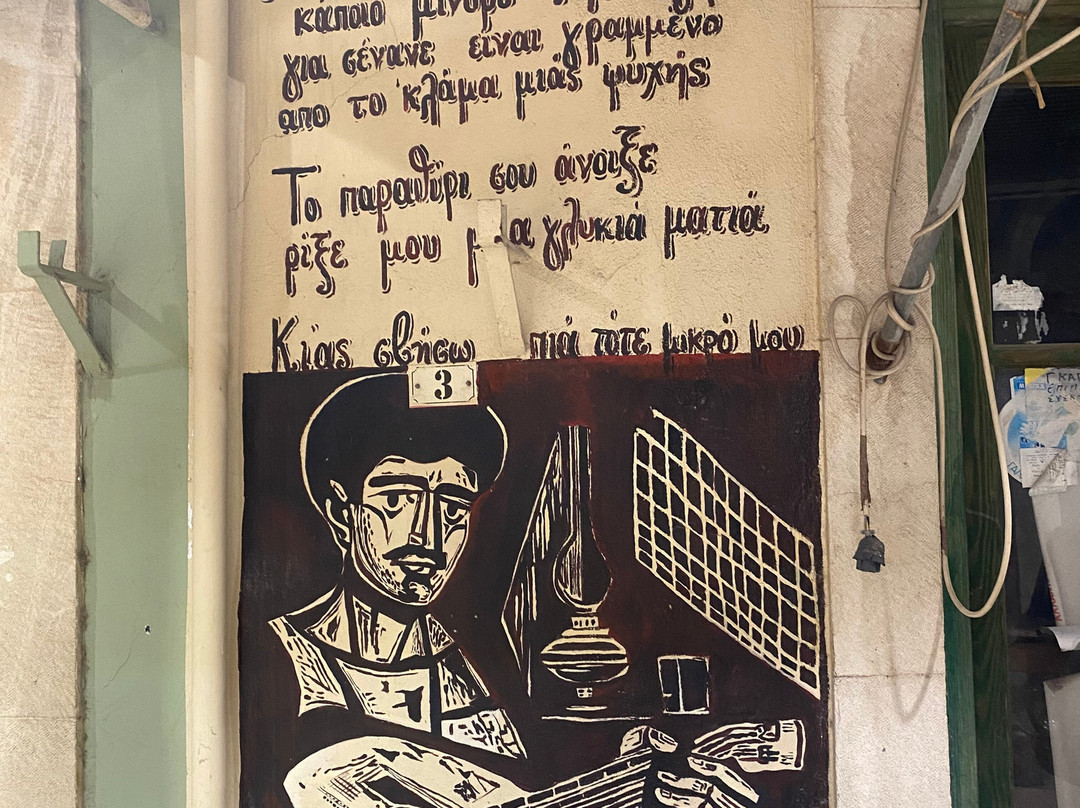 κάποιο μινόρε
για σένανε είναι γραμμένο
απο το κλάμα μιάς ψυχής
Το παραθύρι σου άνοιξε
ρίξε μου γλυκιά ματιά
Κι άς σβήσω πιά τότε μικρό μου
3